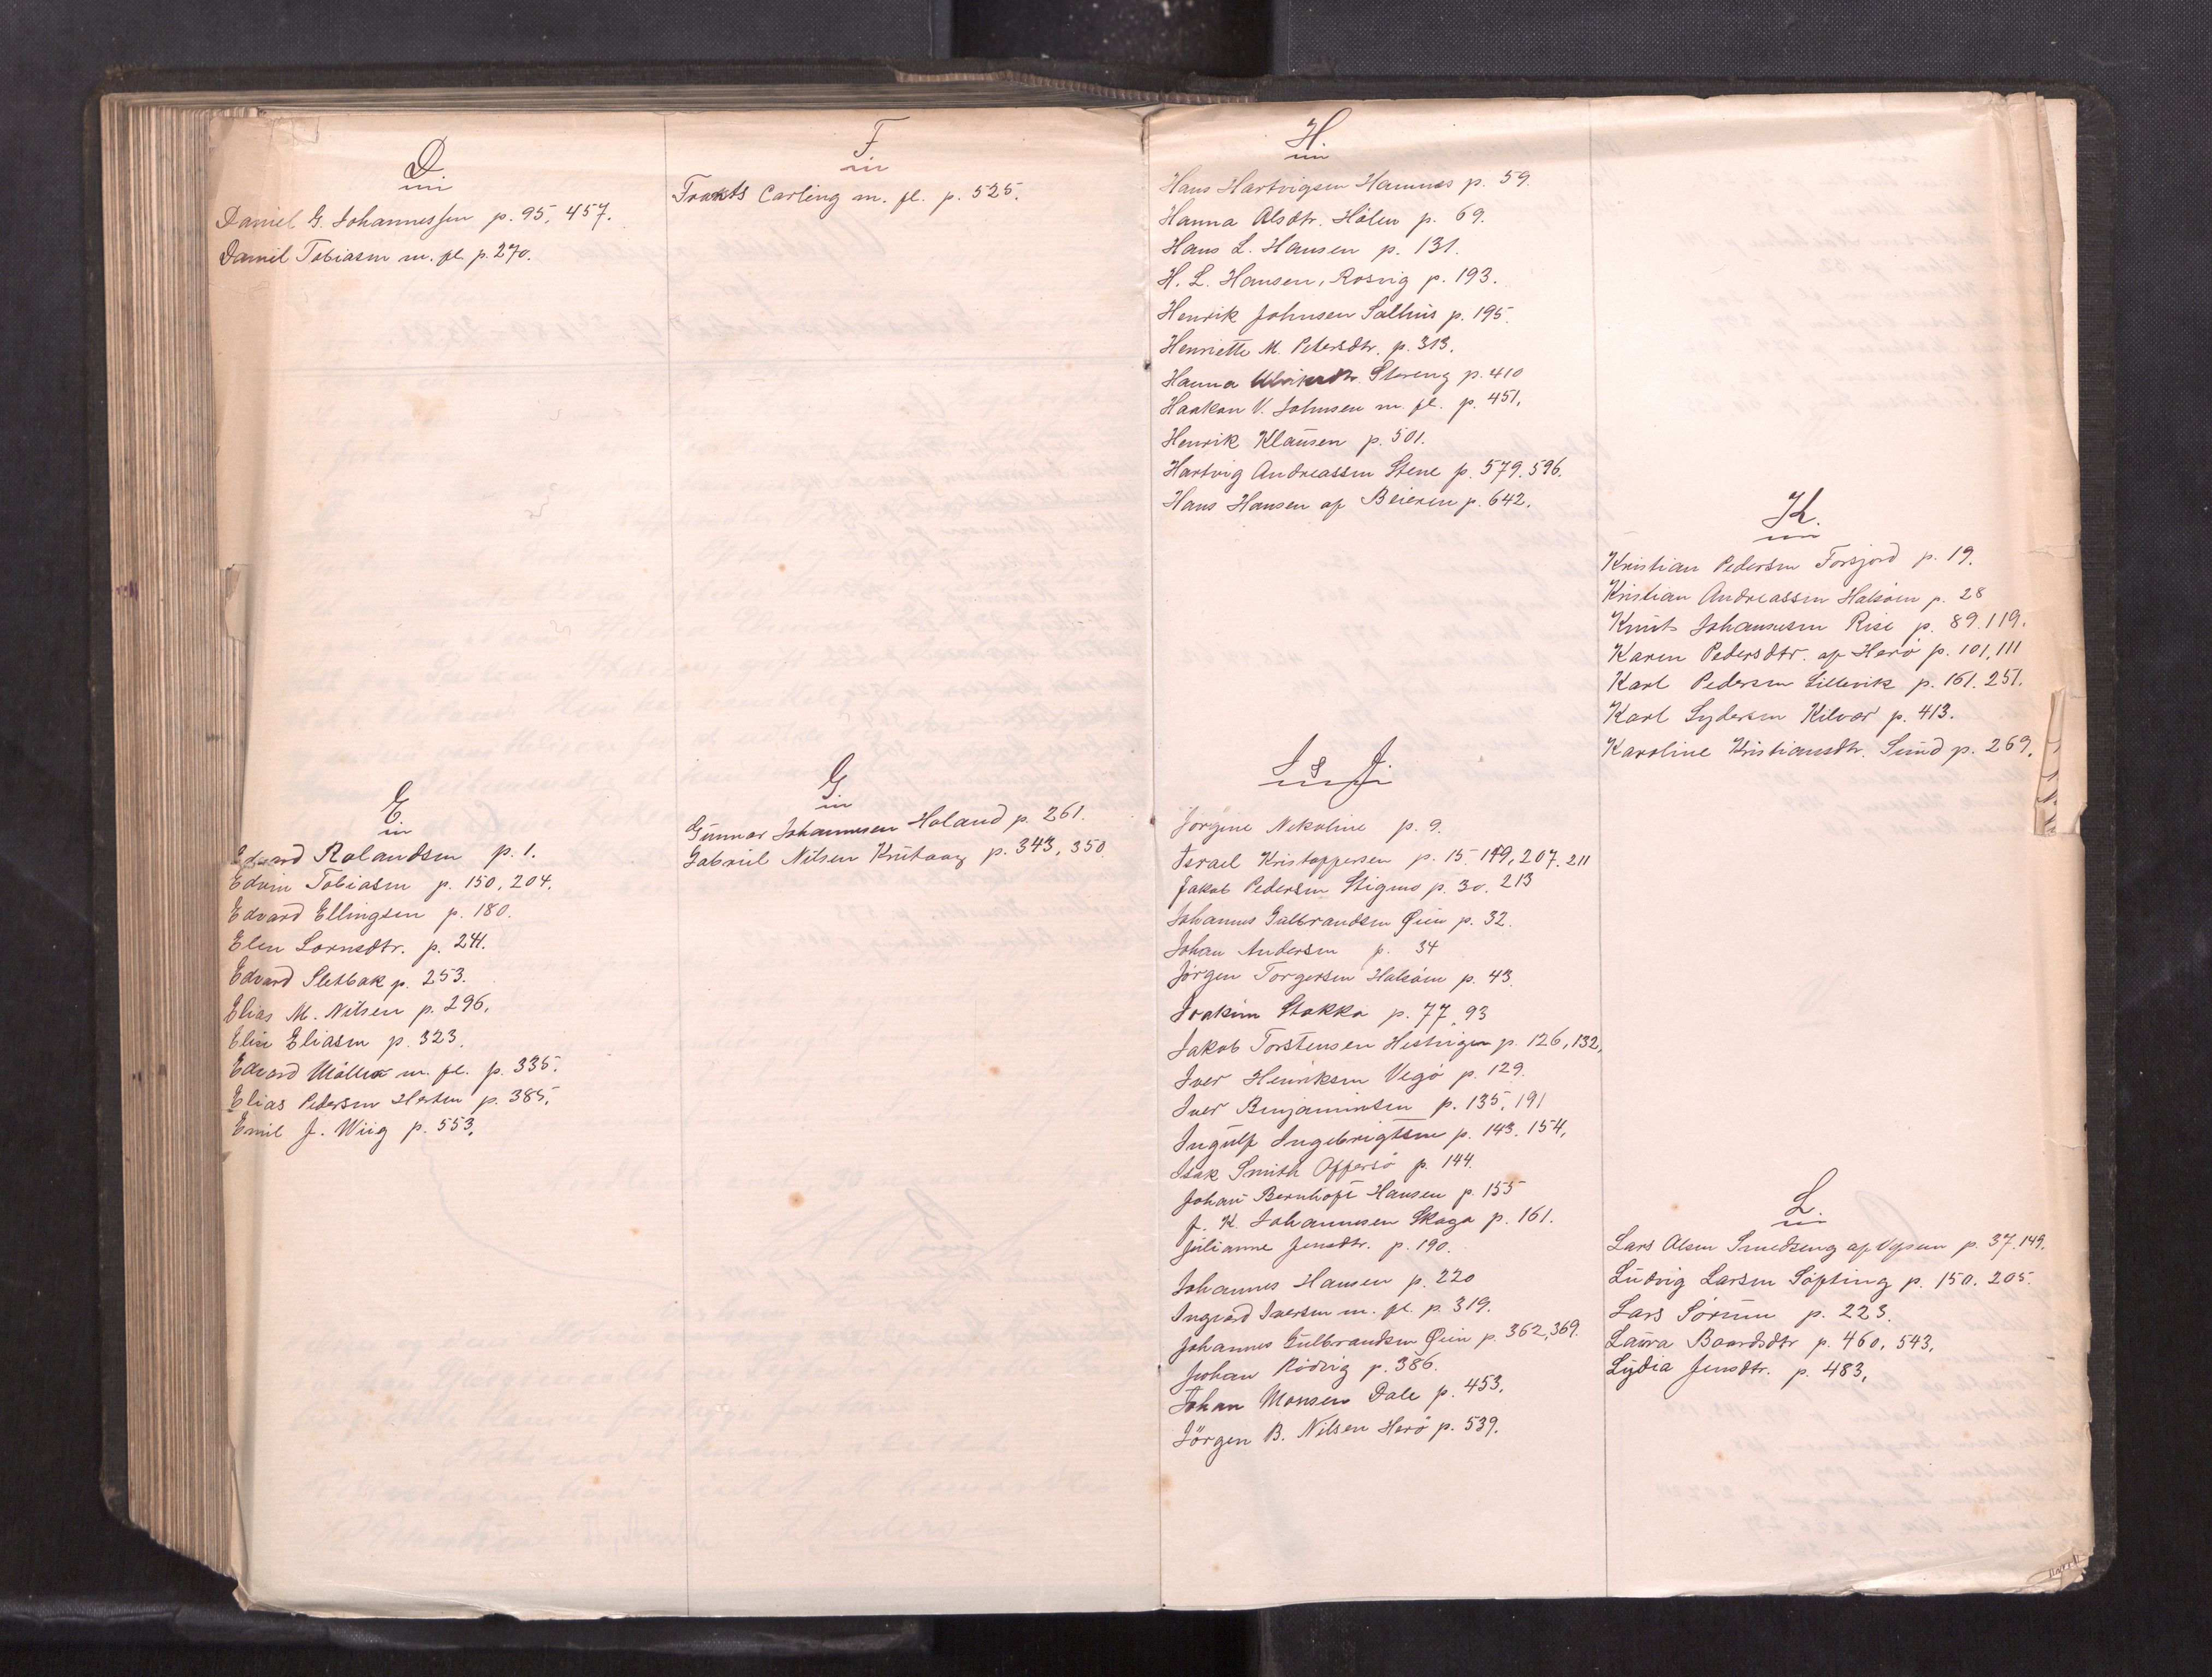 D.
Daniel G. Johannessen p. 95, 457.
Daniel Tobiasen m. fl. p. 270.
E
Edvard Rolandsen p. 1.
Edvin Tobiasen p. 150, 204.
Edvard Ellingsen p. 180.
Elen Lornsdtr. p. 241.
Edvard Sletbak p. 253.
Elias M. Nilsen p. 296.
Elise Eliasen p. 323.
Edvard Møller m. fl. p. 335.
Elias Pedersen p. 385.
Emil J. Wiig p. 553.
F
Frants Carling m. fl. p. 525.
G
Gunnar Johannesen Haland p. 261.
Gabriel Nilsen Krutaag p. 343, 350.
H.
Hans Hartvigsen Hamnes p. 59.
Hanna Olsdtr. Hölen p. 69.
Hans L. Hansen p. 131.
H. L. Hansen, Rosvig p. 193.
Henrik Johnsen Salhus p. 195.
Henriette M. Petersdtr. p. 313.
Hanna Storeng p. 410
Haakon V. Johnsen m. fl. p. 451.
Henrik Klausen p. 501.
Hartvig Andreassen Stene p. 579. 596.
Hans Hansen af Beieren p. 642.
I & J.
Jörgine Nekoline p. 9.
Israel Kristoffersen p. 15. 149, 207. 211
Jakob Pedersen Stigmo p. 30. 213
Johannes Gulbrandsen Øien p. 32.
Johan Andersen p. 34
Jörgen Torgersen Halsöen p. 43.
Joakim Stokka p. 77, 93
Jakob Torstensen p. 126, 132,
Iver Henriksen Vegö p. 129.
Iver Benjaminsen p. 135, 191
Ingulf Ingebrigtsen p. 143. 154,
Isak Smith Offersö p. 144.
Johan Bernhoft Hansen p. 155
J. K. Johannesen Skaga p. 161.
Julianne Jensdtr. p. 190.
Johannes Hansen p. 220
Ingvard Iversen m. fl. p. 319.
Johannes Gulbrandsen Øien p. 362, 369.
Johan Rödvig p. 386.
Johan Monsen Dale p. 453.
Jörgen B. Nilsen Herö p. 539.
K.
Kristian Pedersen Forsjord p. 19.
Kristian Andreassen Halsöen p. 28
Knut Johannesen Rise p. 89. 119.
Karen Pedersdtr. af Herö p. 101, 111
Karl Pedersen Lillevik p. 161. 251.
Karl Sydersen Kilvær p. 413.
Karoline Kristiansdtr. Sund p. 269.
L.
Lars Olsen Smedseng af Vefsen p. 37. 149.
Ludvig Larsen Söfting p. 150. 205.
Lars Sörum p. 223.
Laura Baardsdtr p. 460, 543,
Lydia Jensdtr. p. 483,